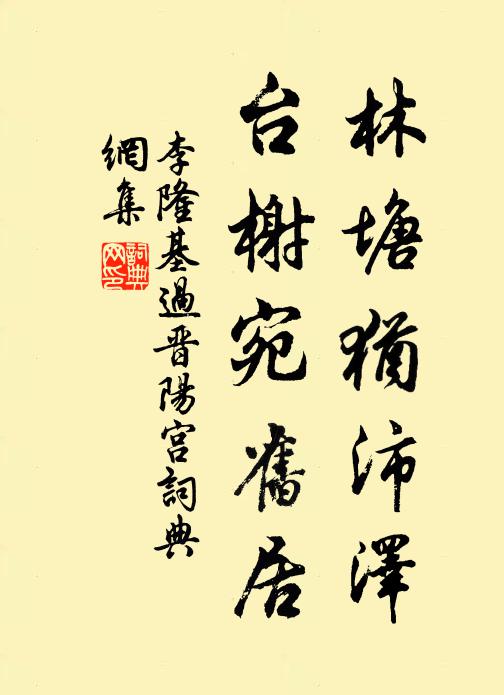 林塘猶沛澤
台榭宛舊居
李隆基過晋陽宫詞典
網集
詞典
网印